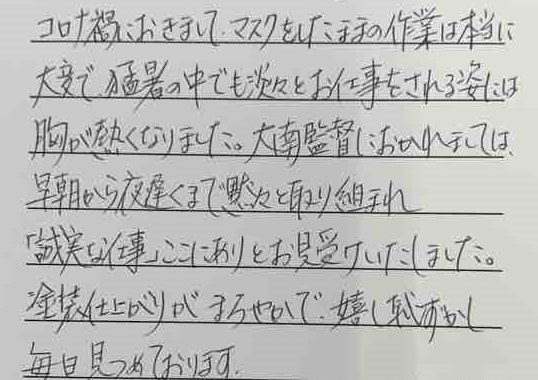 コロナ禍におきまして、マスクをしたままの作業は本当に
大変で、猛暑の中でも淡々とお仕事をされる姿には
胸が熱くなりました。大南監督におかれましては、
早朝から夜遅くまで黙々と取り組まれ
「誠実な仕事」ここにありとお見受けいたしました。
塗装仕上がりがまろやかで、嬉し恥ずかし
毎日見つめております。